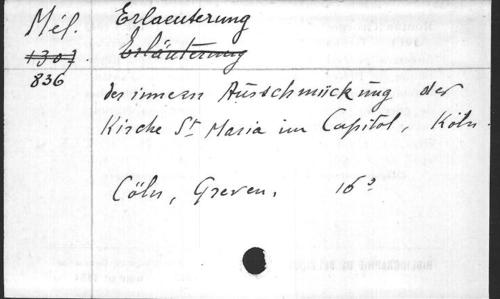 Mél.
1307
836
Erlaeuterung
Erläuterung
der innern Ausschmückung der
Kirche St Maria im Capitol, Köln.
Cöln, Greven. 16º